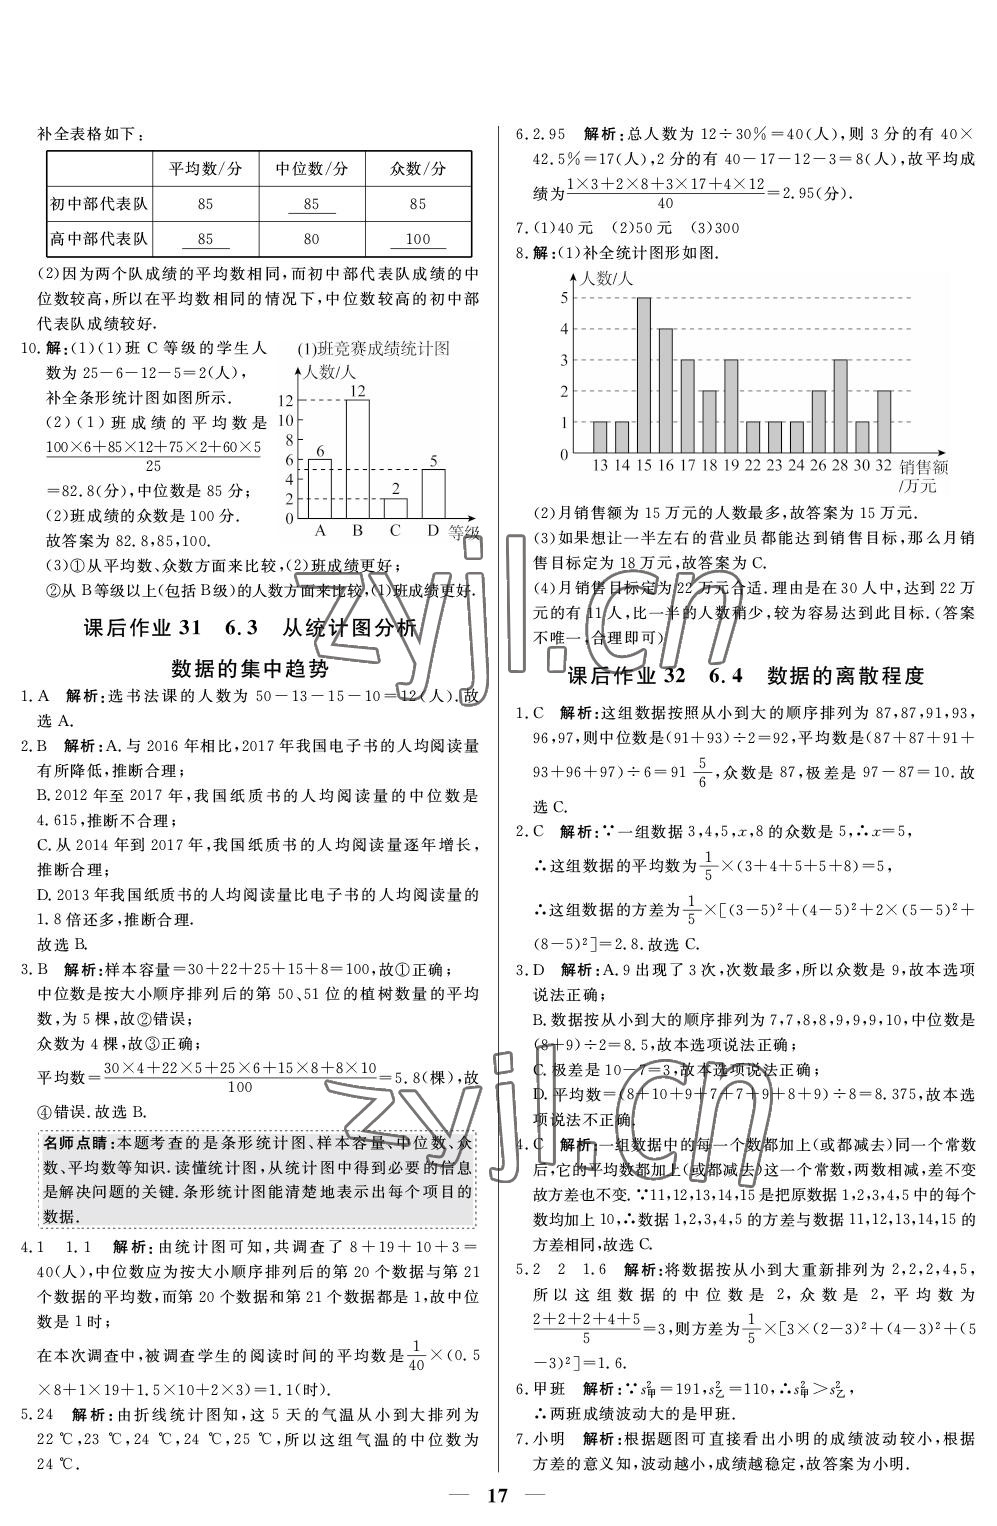 补全表格如下:
平均数/分 中位数/分 众数/分
初中部代表队 85 85 85
高中部代表队 85 80 100
(2)因为两个队成绩的平均数相同,而初中部代表队成绩的中
位数较高,所以在平均数相同的情况下,中位数较高的初中部
代表队成绩较好.
10.解:(1)(1)班 C 等级的学生人
数为 25-6-12-5=2(人),
补全条形统计图如图所示.
(2)(1)班成绩的平均数是
100×6+85×12+75×2+60×5
25
=82.8(分),中位数是 85 分;
(2)班成绩的众数是 100 分.
故答案为 82.8,85,100.
(1)班竞赛成绩统计图
人数/人
12
10
8
6
4
2
0
6 12 2 5
A B C D 等级
(3)①从平均数、众数方面来比较,(2)班成绩更好;
②从 B 等级以上(包括 B 级)的人数方面来比较,(1)班成绩更好.
课后作业 31 6.3 从统计图分析
数据的集中趋势
1.A 解析:选书法课的人数为 50-13-15-10=12(人).故
选 A.
2.B 解析:A.与 2016 年相比,2017 年我国电子书的人均阅读量
有所降低,推断合理;
B.2012 年至 2017 年,我国纸质书的人均阅读量的中位数是
4.615,推断不合理;
C.从 2014 年到 2017 年,我国纸质书的人均阅读量逐年增长,
推断合理;
D.2013 年我国纸质书的人均阅读量比电子书的人均阅读量的
1.8 倍还多,推断合理.
故选 B.
3.B 解析:样本容量=30+22+25+15+8=100,故①正确;
中位数是按大小顺序排列后的第 50、51 位的植树数量的平均
数,为 5 棵,故②错误;
众数为 4 棵,故③正确;
平均数=30×4+22×5+25×6+15×8+8×10/100=5.8(棵),故
④错误.故选 B.
名师点睛:本题考查的是条形统计图、样本容量、中位数、众
数、平均数等知识.读懂统计图,从统计图中得到必要的信息
是解决问题的关键.条形统计图能清楚地表示出每个项目的
数据.
4.1 1.1 解析:由统计图可知,共调查了 8+19+10+3=
40(人),中位数应为按大小顺序排列后的第 20 个数据与第 21
个数据的平均数,而第 20 个数据和第 21 个数据都是 1,故中位
数是 1 时;
在本次调查中,被调查学生的阅读时间的平均数是1/40×(0.5
×8+1×19+1.5×10+2×3)=1.1(时).
5.24 解析:由折线统计图知,这 5 天的气温从小到大排列为
22 ℃,23 ℃,24 ℃,24 ℃,25 ℃,所以这组气温的中位数为
24 ℃.
6.2.95 解析:总人数为 12÷30%=40(人),则 3 分的有 40×
42.5%=17(人),2 分的有 40-17-12-3=8(人),故平均成
绩为1×3+2×8+3×17+4×12/40=2.95(分).
7.(1)40 元 (2)50 元 (3)300
8.解:(1)补全统计图形如图.
人数/人
5
4
3
2
1
0
13 14 15 16 17 18 19 22 23 24 26 28 30 32 销售额
/万元
(2)月销售额为 15 万元的人数最多,故答案为 15 万元.
(3)如果想让一半左右的营业员都能达到销售目标,那么月销
售目标定为 18 万元,故答案为 C.
(4)月销售目标定为 22 万元合适.理由是在 30 人中,达到 22 万
元的有 11 人,比一半的人数稍少,较为容易达到此目标.(答案
不唯一,合理即可)
课后作业 32 6.4 数据的离散程度
1.C 解析:这组数据按照从小到大的顺序排列为 87,87,91,93,
96,97,则中位数是(91+93)÷2=92,平均数是(87+87+91+
93+96+97)÷6=91 5/6,众数是 87,极差是 97-87=10.故
选 C.
2.C 解析:∵一组数据 3,4,5,x,8 的众数是 5,∴x=5,
∴这组数据的平均数为1/5×(3+4+5+5+8)=5,
∴这组数据的方差为1/5×[(3-5)²+(4-5)²+2×(5-5)²+
(8-5)²]=2.8.故选 C.
3.D 解析:A.9 出现了 3 次,次数最多,所以众数是 9,故本选项
说法正确;
B.数据按从小到大的顺序排列为 7,7,8,8,9,9,9,10,中位数是
(8+9)÷2=8.5,故本选项说法正确;
C.极差是 10-7=3,故本选项说法正确;
D.平均数=(8+10+9+7+7+9+8+9)÷8=8.375,故本选
项说法不正确.
4.C 解析:一组数据中的每一个数都加上(或都减去)同一个常数
后,它的平均数都加上(或都减去)这一个常数,两数相减,差不变
故方差也不变.∵11,12,13,14,15 是把原数据 1,2,3,4,5 中的每个
数均加上 10,∴数据 1,2,3,4,5 的方差与数据 11,12,13,14,15 的
方差相同,故选 C.
5.2 2 1.6 解析:将数据按从小到大重新排列为 2,2,2,4,5,
所以这组数据的中位数是 2,众数是 2,平均数为
2+2+2+4+5/5=3,则方差为1/5×[3×(2-3)²+(4-3)²+(5
-3)²]=1.6.
6.甲班 解析:∵s²甲=191,s²乙=110,∴s²甲>s²乙,
∴两班成绩波动大的是甲班.
7.小明 解析:根据题图可直接看出小明的成绩波动较小,根据
方差的意义知,波动越小,成绩越稳定,故答案为小明.
— 17 —
zyjl.cn
zyjl.cn